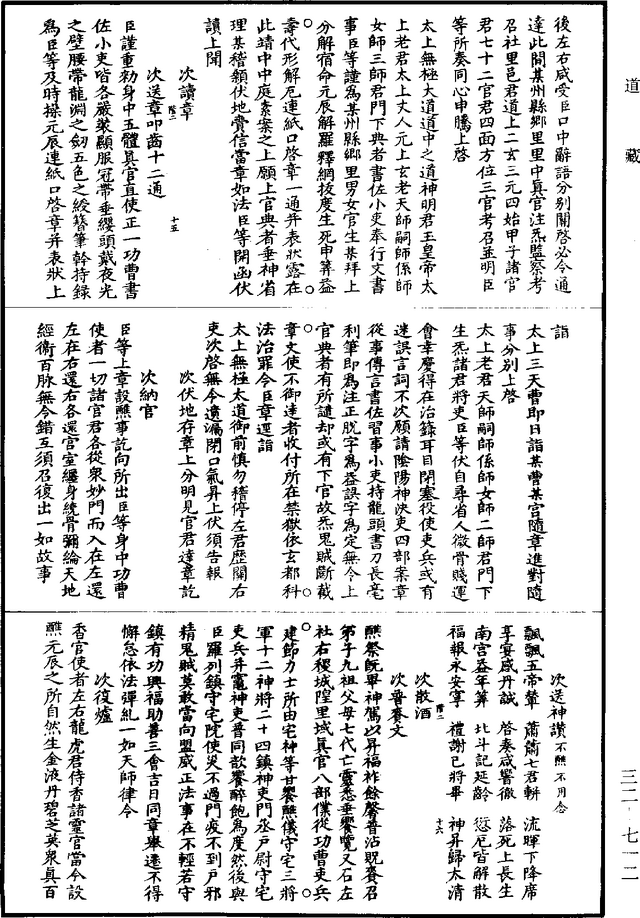 道藏
後左右咸受臣口中辭語分別開啓必令通
達此間某州縣鄉里里中眞官注炁監察考
召社里邑君道上二玄三元四始甲子諸官
君七十二官君四面方位三官考召並明臣
等所奏同心申騰上啓
太上無極大道道中之道神明君玉皇帝太
上老君太上丈人元上玄老天師嗣師係師
女師三師君門下典者書佐小吏奉行文書
事臣等謹爲某州縣鄉里男女官生某拜上
分解宿命元辰解羅釋網拔度生死申筭益
壽代形解厄連紙口啓章一通并表狀露在
此靖中中庭素案之上願上官典者垂神省
理某稽顙伏地賫信當章如法臣等開函伏
讀上聞
次讀章
階二
十五
次送章叩齒十二通
臣謹重勑身中五體眞官直使正一功曹書
佐小吏皆各嚴裝顯服冠帶垂纓頭戴夜光
之璧腰帶龍淵之劒五色之綬簪筆幹持錄
爲臣等及時操元辰連紙口啓章并表狀上
詣
太上三天曹即日詣某曹某宮隨章進對隨
事分別上啓
太上老君天師嗣師係師女師二師君門下
生炁諸君將吏臣等伏自尋省人微骨賤運
會幸慶得在治籙耳目閉塞役使吏兵或有
迷誤言詞不次願請陰陽神決吏四部案章
從事傳言書佐習事小吏持龍頭書刀長毫
利筆即爲注正脫字爲益誤字爲定無令上
官典者有所譴却或有下官故炁鬼賊斷截
章文使不御達者收付所在禁獄依玄都科
法治罪令臣章逕詣
太上無極太道御前愼勿稽停左君歷關右
吏次啓無令遺漏閉口氣昇上伏須告報
次伏地存章上分明見官君達章訖
次納官
臣等上章設醮事訖向所出臣等身中功曹
使者一切諸官君各從衆妙門而入在左還
左在右還右各還宮室纏身統骨彌綸天地
經衛百脉無令錯互須召復出一如故事
次送神讚不醮不用念
飄飄五帝輦 蕭蕭七君軿 流暉下降席
享宴感丹誠 啓奏咸響徹 落死上長生
南宮益年筭 北斗記延齡 愆厄皆解散
福報永安寧 禮謝已將畢 神昇歸太清
階二
十六
次散酒
次晉賽文
醮祭旣畢神駕以昇福祚餘馨普沾貺賽召
第子九祖父母七代亡靈悉垂饗覽又石左
社右稷城隍里域眞官八部僕從功曹吏兵
建節力士所由宅神等甘饗醮儀守宅三將
軍十二神將二十四鎮神吏門丞戶尉守宅
吏兵井竈神吏普同歆饗醉飽爲度然後與
臣羅列鎮守宅院使災不過門疫不到戶邪
精鬼賊莫敢當向盟威正法事在不輕若守
鎮有功興福助善三會吉日同章舉遷不得
懈怠依法彈糺一如天師律令
次復爐
香官使者左右龍虎君侍香諸靈官當令設
醮元辰之所自然生金液丹碧芝英衆眞百
三二·七一二